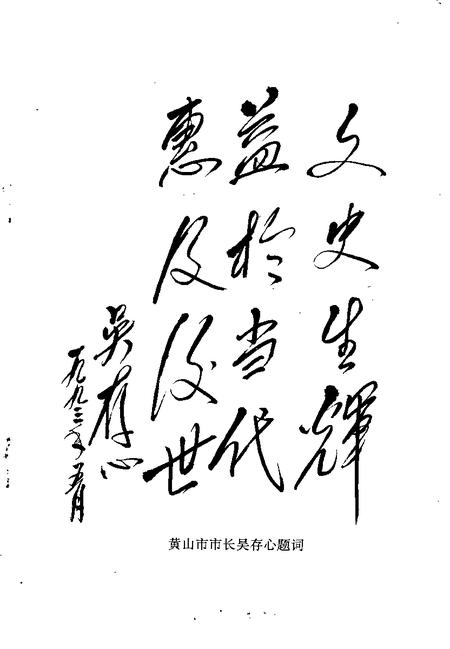 文史生輝
益於当代
惠及後世
吴存心
一九九三年五月
黄山市市长吴存心题词